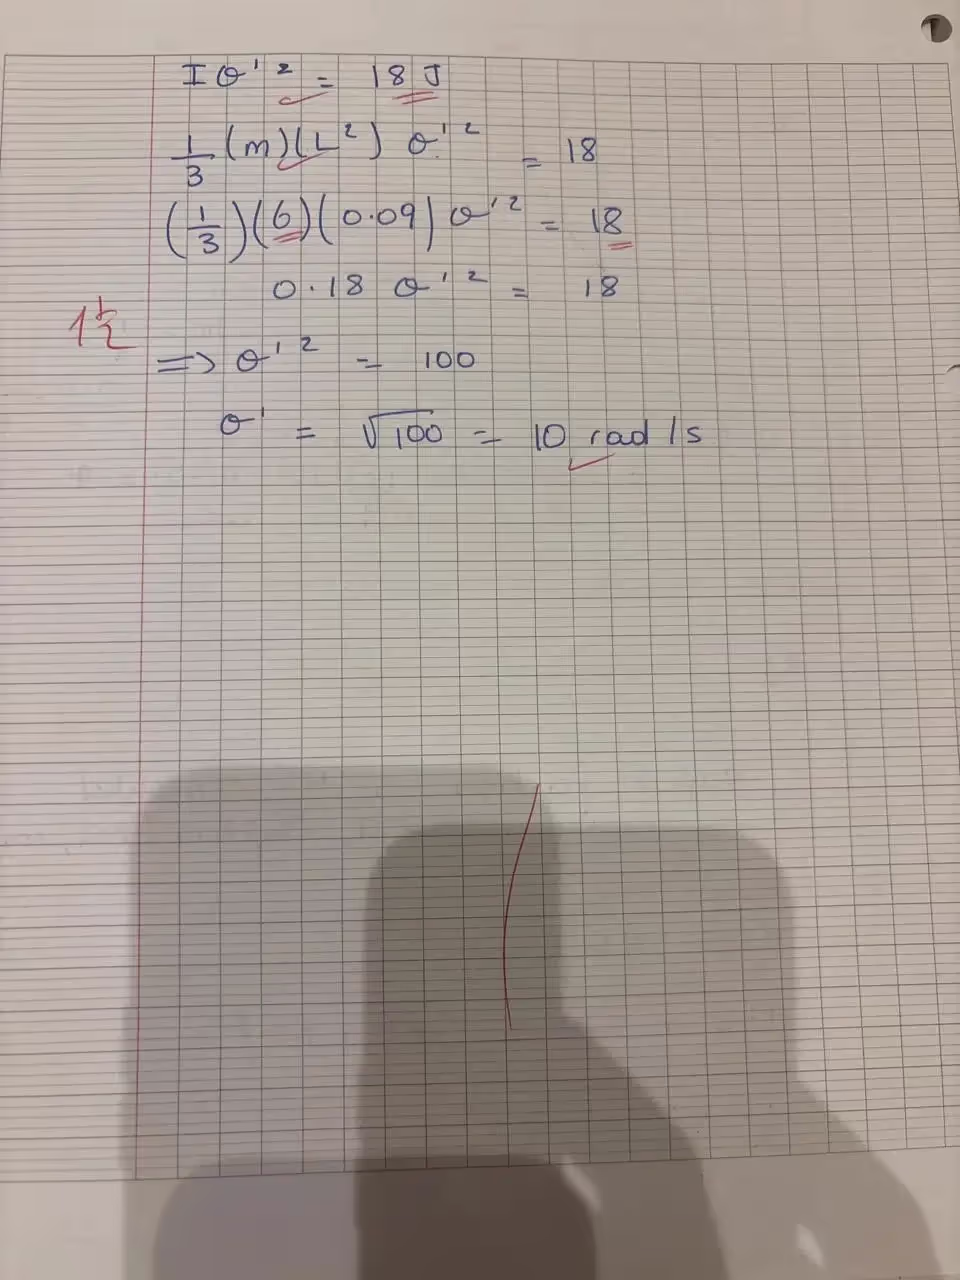 I θ'² = 18 J
1/3 (m)(L²) θ'² = 18
(1/3)(6)(0.09) θ'² = 18
0.18 θ'² = 18
1½
=> θ'² = 100
θ' = √100 = 10 rad/s